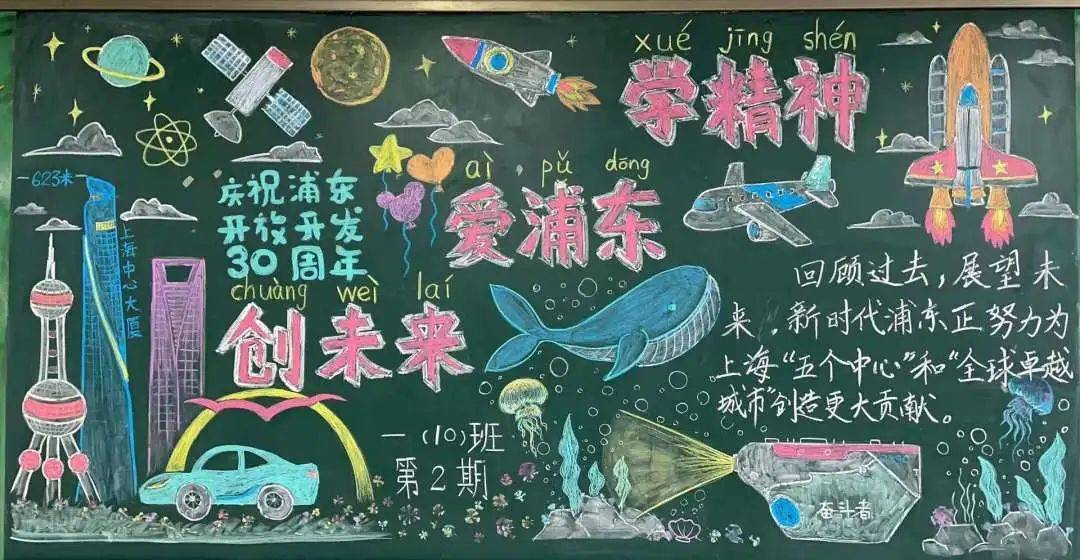 xué jīng shén
学精神
623米
上海中心大厦
庆祝浦东
开放开发
30周年
aì pǔ dōng
爱浦东
chuàng weì laí
创未来
回顾过去，展望未
来，新时代浦东正努力为
上海“五个中心”和“全球卓越
城市”创造更大贡献。
一（10）班
第2期
奋斗者